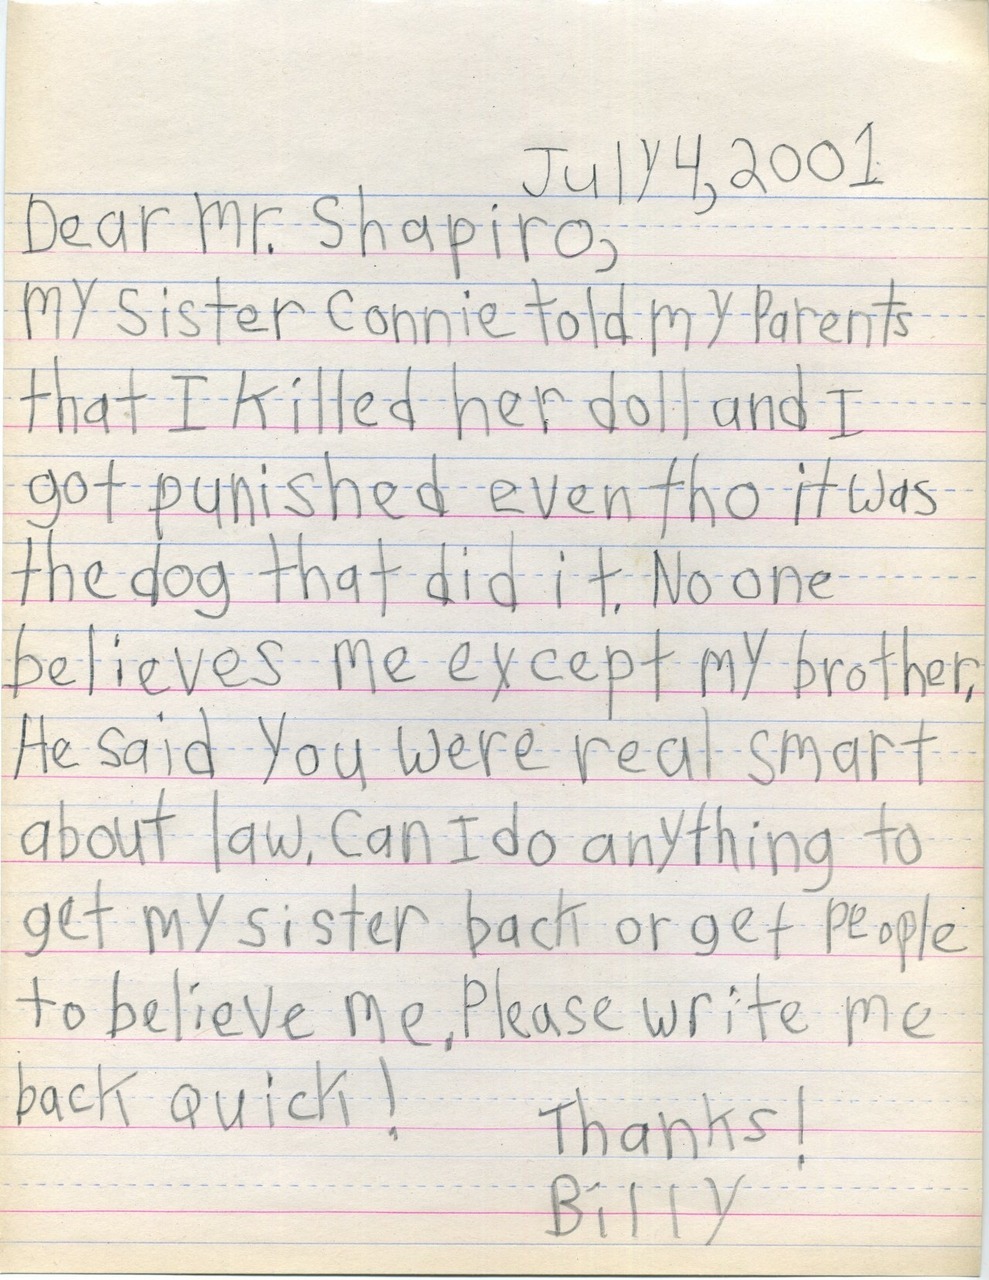 July 4, 2001
Dear Mr. Shapiro,
My Sister Connie told my Parents
that I killed her doll and I
got punished even tho it was
the dog that did it. No one
believes me except my brother.
He said you were real smart
about law. Can I do anything to
get my sister back or get people
to believe me. Please write me
back quick!
Thanks!
Billy